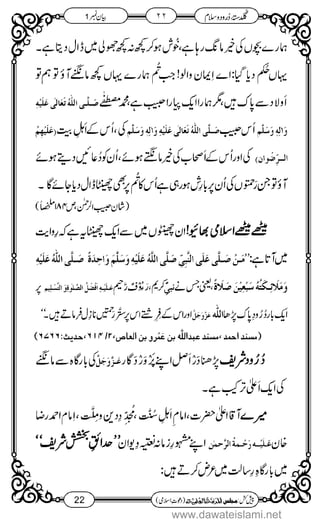 گلدستۂ درود و سلام ۲۲ بیان نمبر ۹
ہمارے بچوں کی خیر مانگ رہا ہے، خُوش ہو کر کچھ نہ کچھ جھولی میں ڈال دیتا ہے۔
یہاں حکم دیا گیا: اے ایمان والو! جب تم ہمارے یہاں کچھ مانگنے آؤ تو ہم تو
اولاد سے پاک ہیں، مگر ہمارا ایک پیارا حبیب ہے، محمدِ مصطفٰے صَلَّی اللّٰہُ تَعَالٰی عَلَیْہِ
وَاٰلِہٖ وَسَلَّم اُس حبیب صَلَّی اللّٰہُ تَعَالٰی عَلَیْہِ وَاٰلِہٖ وَسَلَّم کی، اُس کے اہلِ بیت
اور اُس کے اَصحاب کی خیر مانگتے ہوئے، اُن کو دُعائیں دیتے ہوئے
آؤ تو جن رَحمتوں کی اُن پر بارِش ہو رہی ہے اُس کا تم پر بھی چھینٹا ڈال دیا جائے گا۔
(شان حبیب الرحمٰن، ص ۱۸۴ ملخصاً)
میٹھے میٹھے اسلامی بھائیو! ان چھینٹوں میں سے ایک چھینٹا یہ ہے کہ روایت
میں آتا ہے: ’’مَنْ صَلَّی عَلَی النَّبِیِّ صَلَّی اللّٰہُ عَلَیْہِ وَسَلَّمَ وَاحِدَۃً صَلَّی اللّٰہُ عَلَیْہِ
وَمَلَائِکَتُہُ سَبْعِیْنَ صَلَاۃً یعنی جس نے نبیِّ کریم، رَءُوْفٌ رَّحیم عَلَیْہِ اَفْضَلُ الصَّلٰوۃِ وَالتَّسْلِیْم پر
ایک بار دُرُودِ پاک پڑھا اللّٰہ عَزَّوَجَلَّ اور اس کے فرِشتے اُس پر ستّر رَحمتیں نازِل فرماتے ہیں۔‘‘
(مسند احمد، مسند عبداللّٰہ بن عمرو بن العاص، ۲/ ۶۱۴، حدیث: ۶۷۶۶)
دُرُود شریف پڑھنا دَرْ اَصل اپنے پَرْوَرْدگار عَزَّوَجَلَّ کی بارگاہ سے مانگنے
کی ایک اَعلیٰ ترکیب ہے۔
میرے آقا اعلیٰ حضرت، امامِ اہلِ سُنَّت، مُجدِّدِ دین و مِلَّت، امام احمد رضا
خان عَلَیْہِ رَحْمَۃُ الرَّحْمٰن اپنے مشہورِ زمانہ نعتیہ دیوان ’’حدائقِ بخشش شریف‘‘
میں بارگاہِ رسالت میں عرض کرتے ہیں:
22
www.dawateislami.net